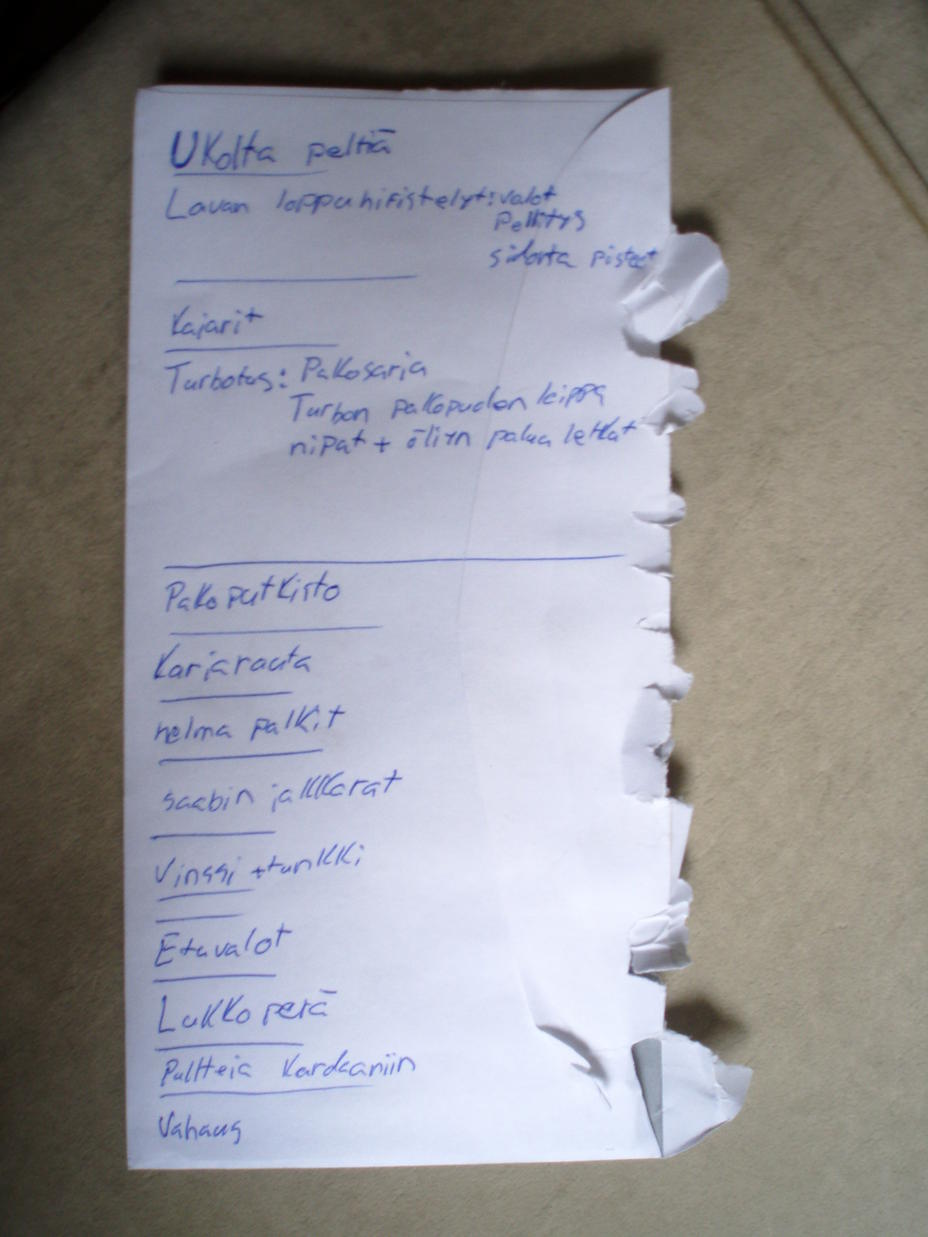 Ukolta peltiä
Lavan loppuhifistelyt: valot
Pellitys
sidonta pisteet
Kajarit
Turbotus: Pakosarja
Turbon pakopuolen laippa
nipat + öliyn paluu letkut
Pakoputkisto
Karjarauta
helma palkit
saabin jakkarat
Vinssi + tunkki
Etuvalot
Lukko perä
Pultteja Kardaaniin
Vahaus